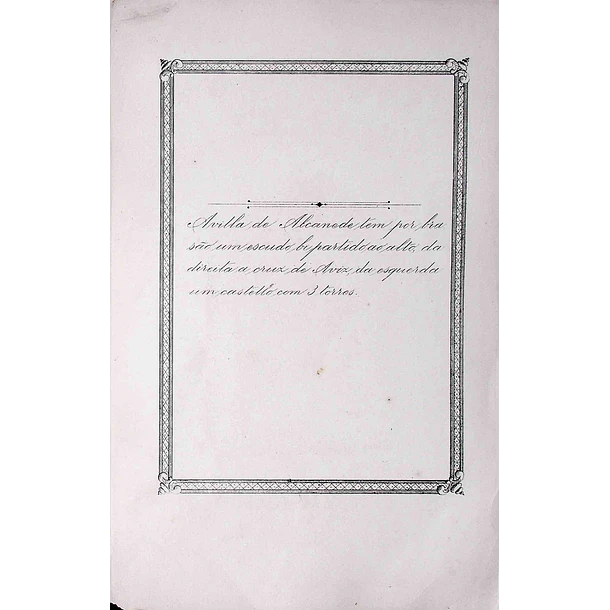 A villa de Alcanede tem por bra
são um escudo bi partido ao alto, da
direita a cruz de Aviz, da esquerda
um castello com 3 torres.